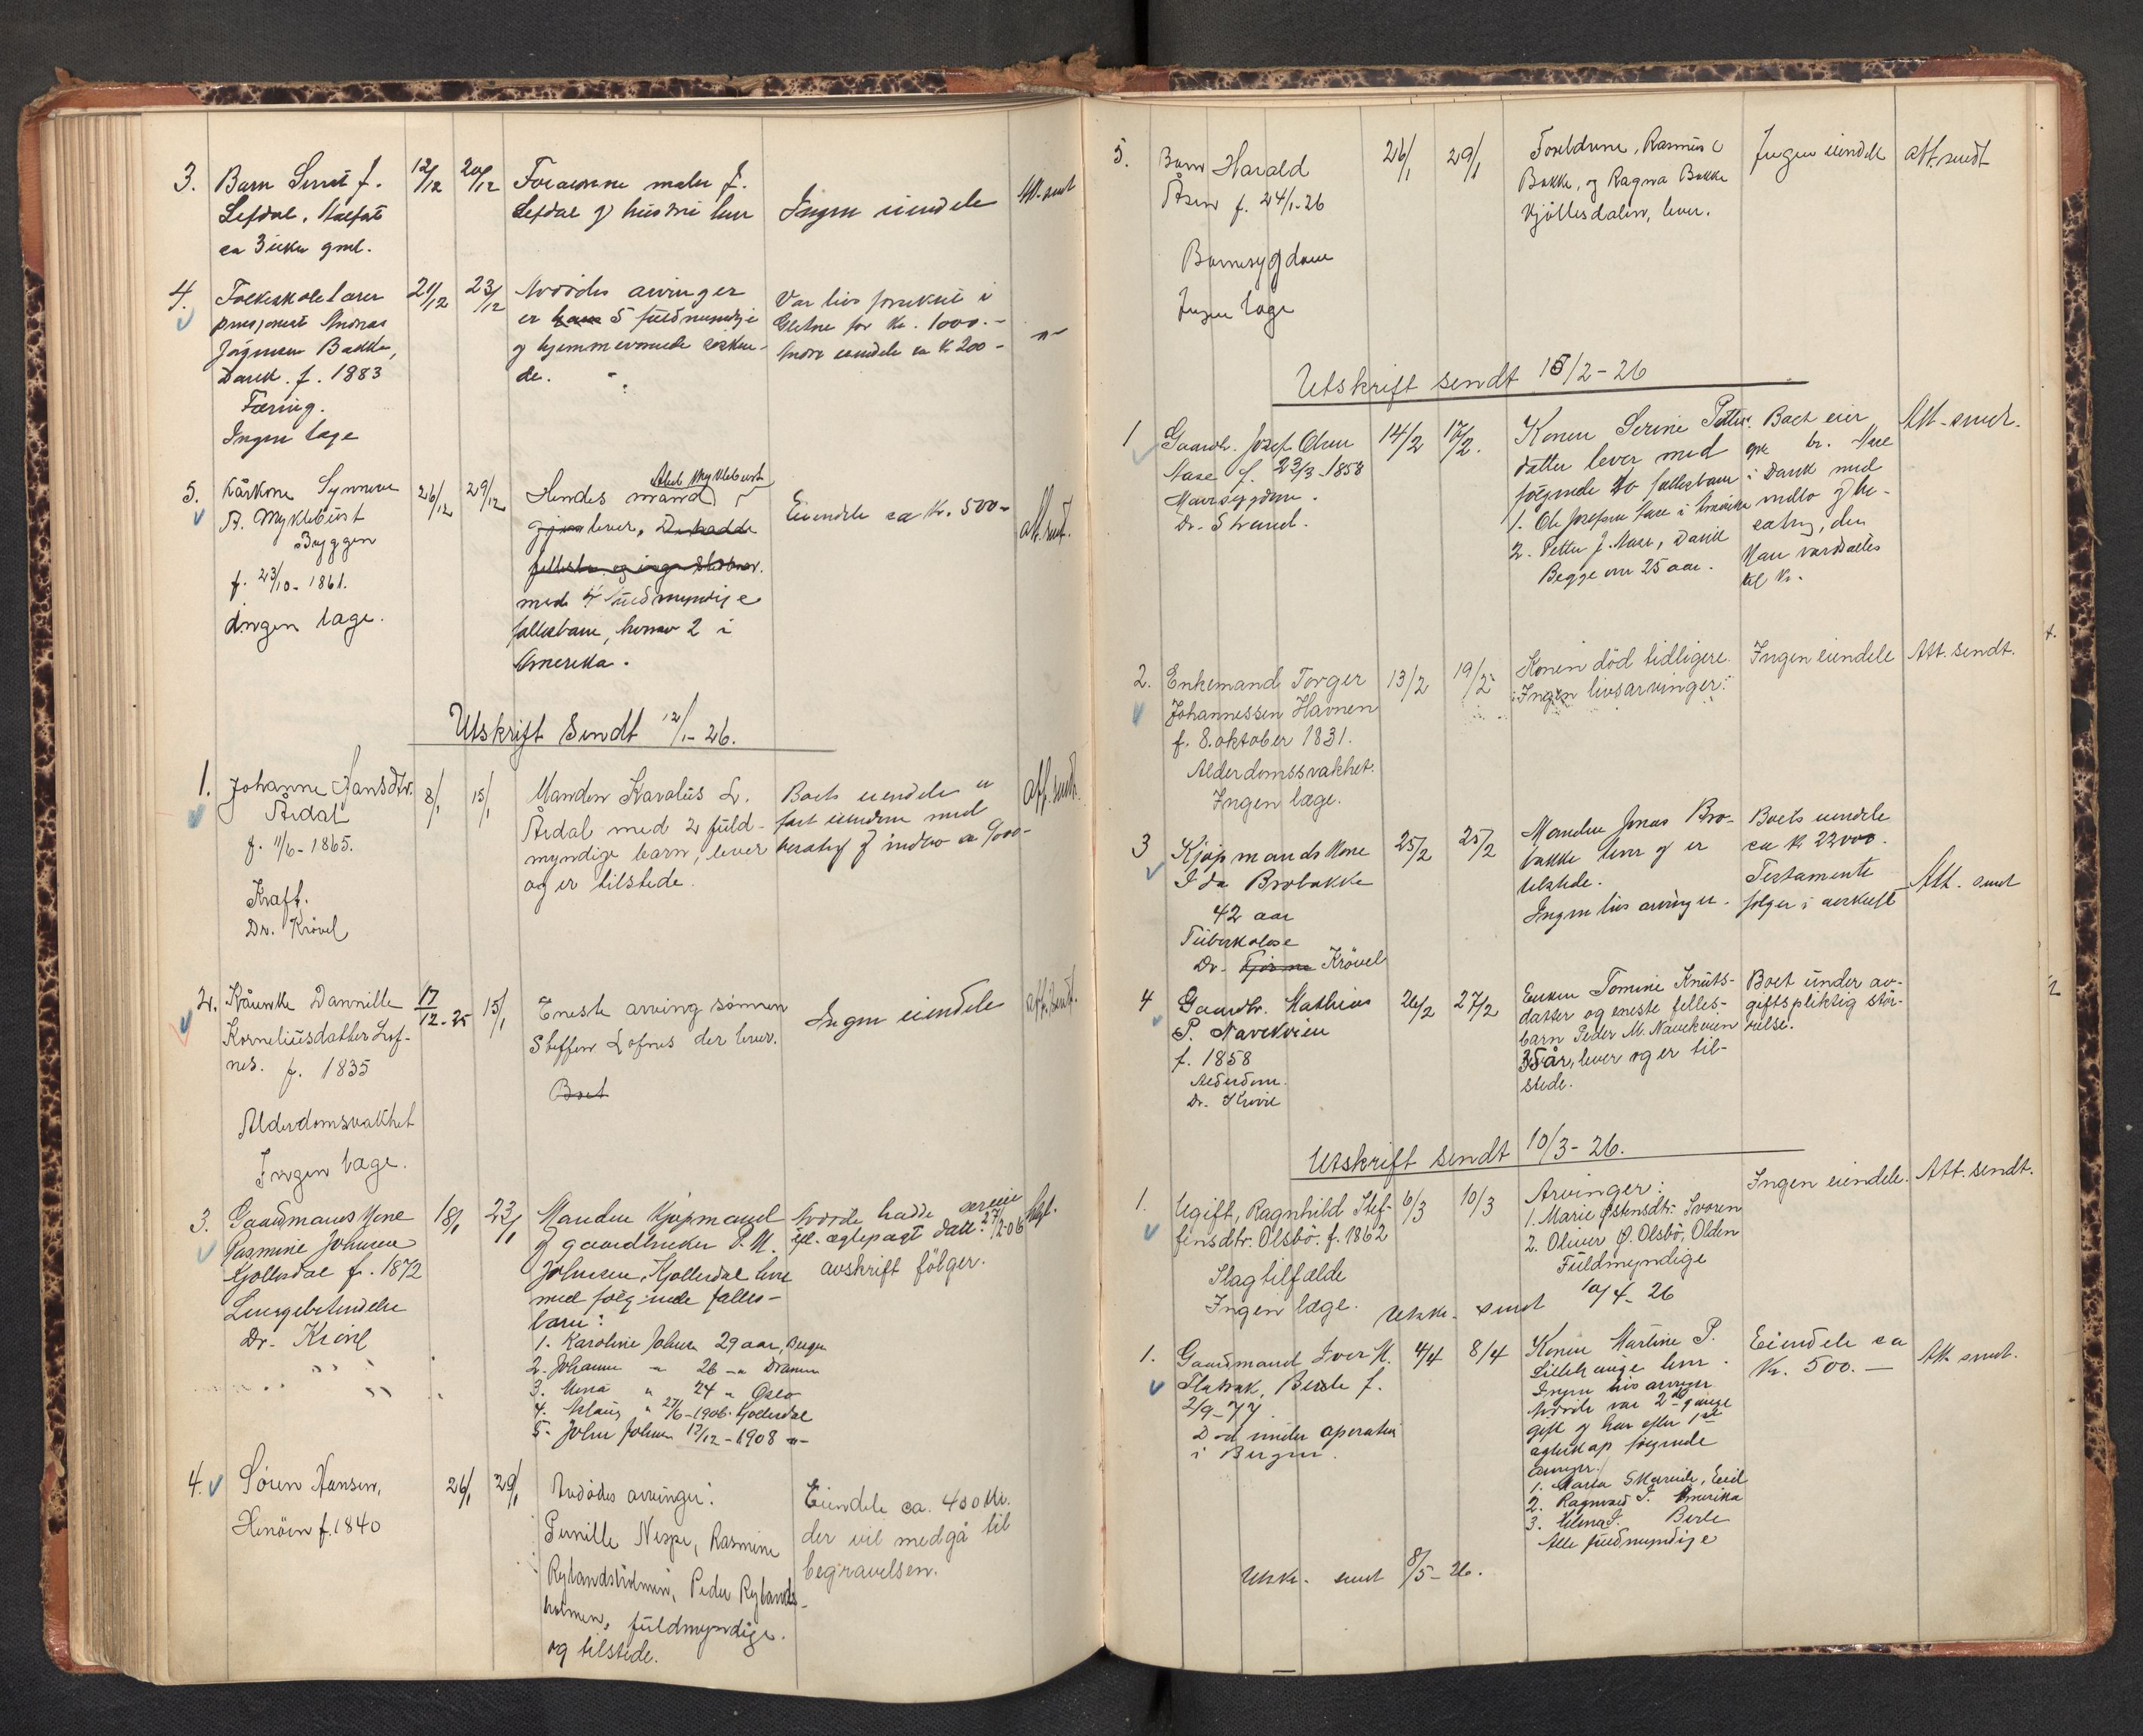 3. Barn Lefdal
ca 3 uker gml.
12/12 20/12
Foraeldrene maler J.
Lefdal og hustru lever
Ingen eiendele
Att. sendt
4. Folkeskolelærer
pensjonert Andreas
Bakke,
Davik. f. 1883
Tæring.
Ingen læge
21/12 23/12
Avdødes arvinger
er 5 fuldmyndige
og hjemmeværende søsken-
de.
Var livsforsikret i
for Kr. 1000.-
Andre eiendele ca Kr 200-
-"-
5. Kårkone Synneve
A. Myklebust
Bryggen
f. 23/10-1861.
Ingen læge.
26/12 29/12
Abel Myklebust
Hendes mand
lever, De hadde
med 4 fuldmyndige
fællesbarn, hvorav 2 i
Amerika.
Eiendele ca Kr. 500-
att. sendt.
Utskrift Sendt 12/1-26.
1. Johanne Hansdtr.
Årdal
f. 11/6-1865.
Kræft.
Dr. Krövel
8/1 15/1
Manden Karolus L.
Årdal med 2 fuld-
myndige barn, lever
og er tilstede.
Boets eiendele er
fast eiendom med
besætn. og indbo ca 9000-
att. sendt.
2. Kårenke Dannille
Korneliusdatter Lof-
nes. f. 1835
Alderdomsvakhet
Ingen læge.
17/12-25 15/1
Eneste arving sönnen
Steffen Lofnes der lever.
Boet
Ingen eiendele
att. sendt.
3. Gaardmands kone
Rasmine Johnsen
Kjöllesdal f. 1872
Lungebetændelse
Dr. Krövel
18/1 23/1
Manden Kjøpmand
og gaardbruker P. M.
Johnsen, Kjöllesdal lever
med følgende fælles-
barn:
1. Karoline Johnsen 29 aar, Bergen
2. Johanne " 26 -"- Drammen
3. " 24 " Oslo
4. Klaus " 27/6-1906. Kjöllesdal
5. John Johnsen 12/12-1908 -"-
Avdøde hadde særeie
ifl. ægtepagt dat. 27/2-06
avskrift fölger.
4. Sören Hansen,
Henöen f. 1840
26/1 29/1
Avdödes arvinger:
Pernille Nespe, Rasmine
Rylandsholmen, Peder Rylands-
holmen, fuldmyndige.
og tilstede.
Eiendele ca. 400 Kr.
der vil medgå til
begravelsen.
5. Barn Harald
Åsen f. 24/1-26
Barnesygdom
Ingen læge
26/1 29/1
Foreldrene, Rasmus
Bakke, og Ragna Bakke
Kjöllesdalen, lever.
Ingen eiendele
att. sendt
Utskrift sendt 18/2-26
1 Gaardbr. Josef Olsen
Nase f. 23/3-1858
Mavesygdom.
Dr. Strand.
14/2 17/2.
Konen Serine Petters-
datter lever med
følgende to fællesbarn
1. Ole Josefsen Nase i Amerika
2. Petter J. Nase, Davik
Begge over 25 aar.
Boet eier
br. Nase
i Davik med
indbo og be-
sætn., den
kan værdsættes
til Kr.
Att. sendt.
2. Enkemand Torger
Johannessen Havnen
f. 8. oktober 1831.
Alderdomssvakhet.
Ingen læge.
13/2 19/2
Konen död tidligere.
Ingen livsarvinger.
Ingen eiendele
Att. sendt.
3 Kjøpmands kone
Ida Brobakke
42 aar
Tuberkulose
Dr. Krövel
25/2 25/2
Manden Jonas Bro-
bakke lever og er
tilstede.
Ingen livsarvinger.
Boets eiendele
ca Kr 22000.
Testamente
følger i avskrift
Att. sendt
4 Gaardbr. Mathias
P. Navekvien
f. 1858
Alderdom.
Dr. Krövel
26/2 27/2
Enken Tomine Knuts-
datter og eneste felles-
barn Peder M. Navekvien
35 år, lever og er til-
stede.
Boet under av-
giftspliktig stör-
relse.
Utskrift sendt 10/3-26.
1. Ugift, Ragnhild Stef-
finsdtr. Olsbö. f. 1862
Slagtilfælde
Ingen læge.
6/3 10/3
Arvinger:
1. Marie Østensdtr. Svoren
2. Oliver Ø. Olsbö, Olden
Fuldmyndige
Ingen eiendele.
Att. sendt.
Utskr. sendt 10/4-26
1. Gaardmand Iver M.
Flatrak, Berle f.
2/9-77
Død under operation
i Bergen.
4/4 8/4
Konen Martine P.
Lillehauge lever.
Ingen livsarvinger
Avdøde var 2den gang
gift og har efter 1ste
ægteskap følgende
arvinger.
1. Marta
2. Ragnvald I. Amerika
3. Helene I. Berle
Alle fuldmyndige
Eiendele ca
Kr. 500.-
Att. sendt.
Utskr. sendt 8/5-26.